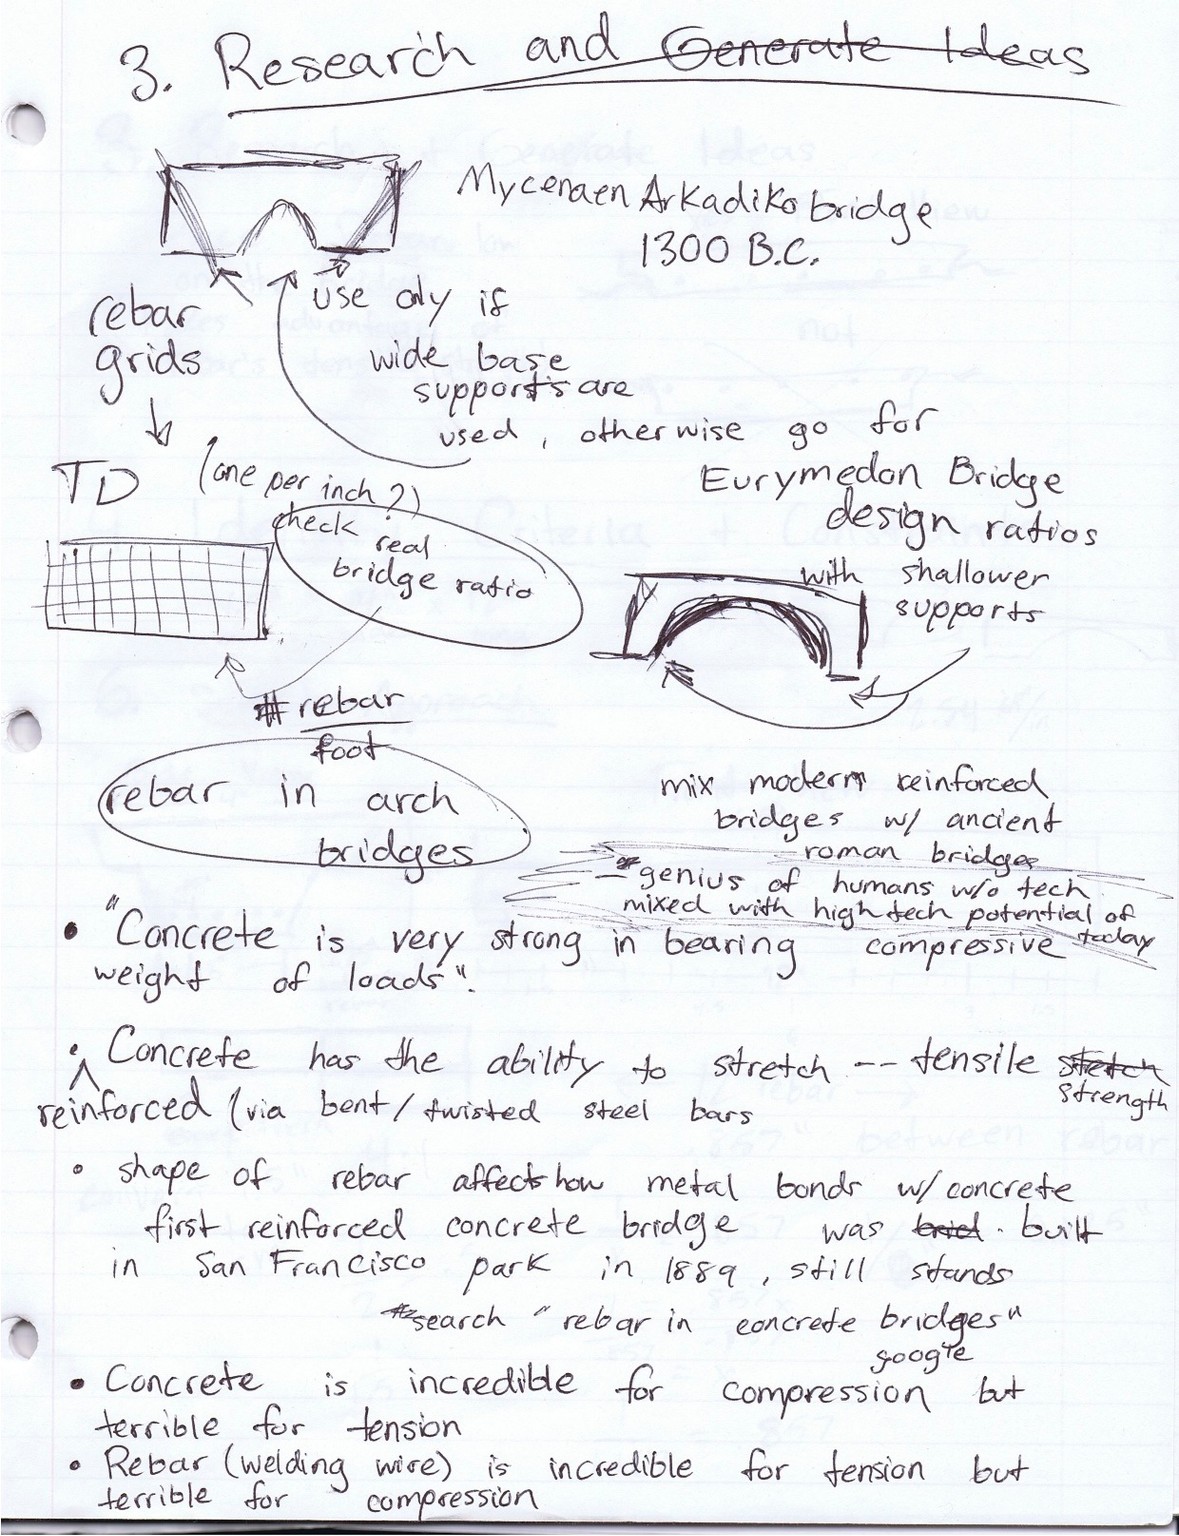 3. Research and Generate Ideas
Mycenaen Arkadiko bridge
1300 B.C.
rebar
grids
use only if
wide base
supports are
used, otherwise go for
Eurymedon Bridge
design ratios
with shallower
supports
TD
(one per inch?)
check real
bridge ratio
# rebar
foot
rebar in arch
bridges
mix modern reinforced
bridges w/ ancient
roman bridges
genius of humans w/o tech
mixed with high tech potential of
today
• "Concrete is very strong in bearing compressive
weight of loads".
• Concrete has the ability to stretch -- tensile stetch
strength
reinforced (via bent/twisted steel bars
• shape of rebar affects how metal bonds w/ concrete
first reinforced concrete bridge was built
in San Francisco park in 1889, still stands
*search "rebar in concrete bridges"
google
• Concrete is incredible for compression but
terrible for tension
• Rebar (welding wire) is incredible for tension but
terrible for compression